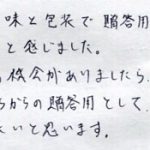 味と包装で贈答用
と感じました。
機会がありましたら、
からの贈答用として、
いと思います。